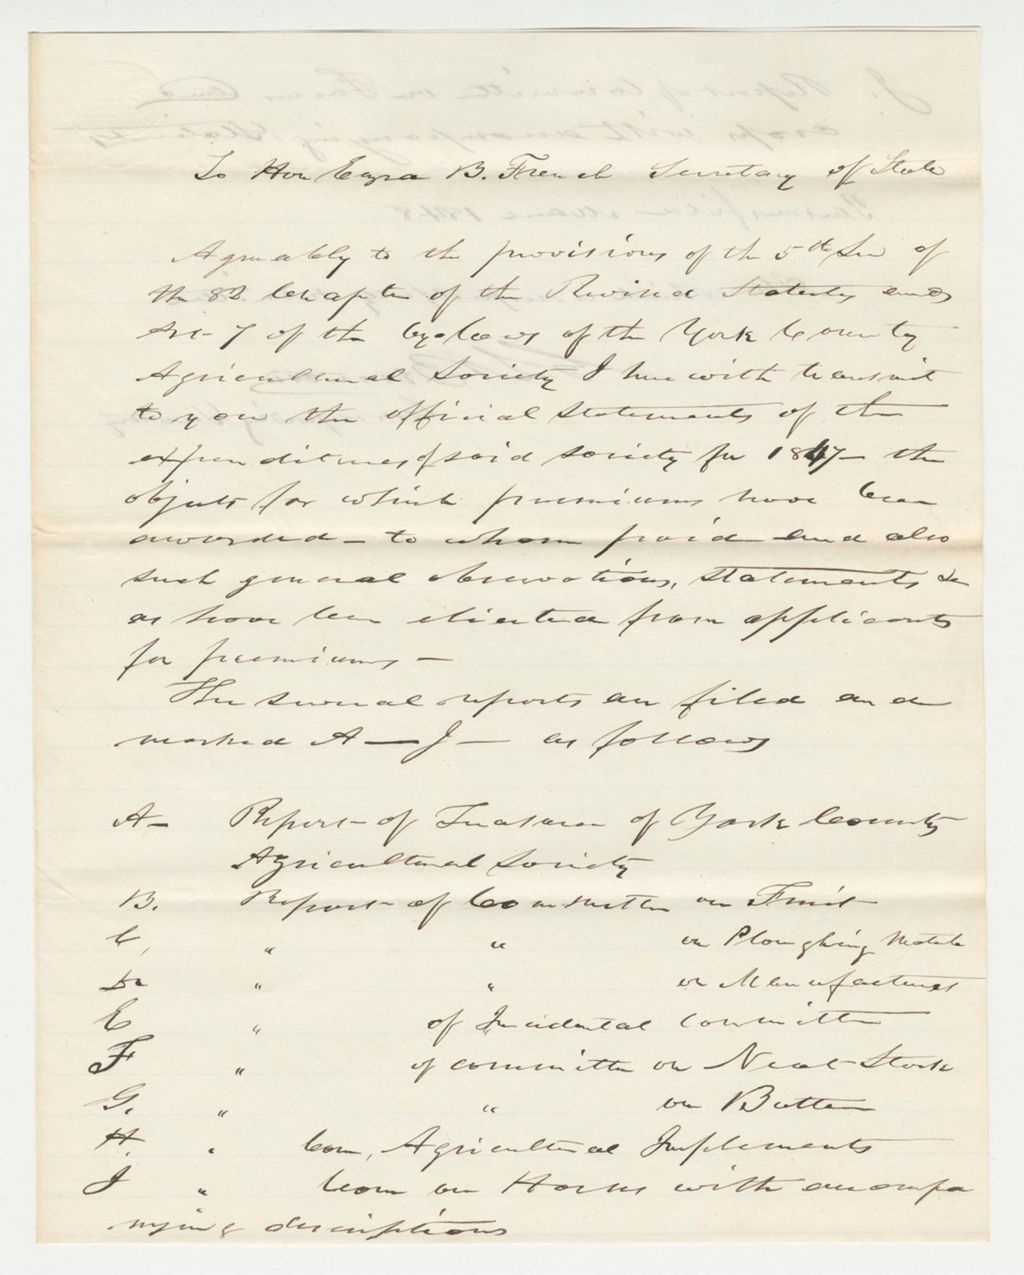 To Hon Ezra B. French Secretary of State
Agreeably to the provisions of the 5th Sec of
the 82 Chapter of the Revised Statutes and
Art-7 of the bye laws of the York County
Agricultural Society I herewith transmit
to you the official statements of the
expenditures of said society for 1847 - the
objects for which premiums have been
awarded - to whom paid and also
such general observations, statements &c
as have been elicited from applicants
for premiums -
The several reports are filed and
marked A — J — as follows
A- Report of Treasurer of York County
Agricultural Society
B. Report of Committee on Fruit
C. " " on Ploughing Match
D " " on Manufactures
E " of Incidental Committee
F " of committee on Neat Stock
G. " " on Butter
H. " Com, Agricultural Implements
J " Com on Horses with accompa
nying descriptions